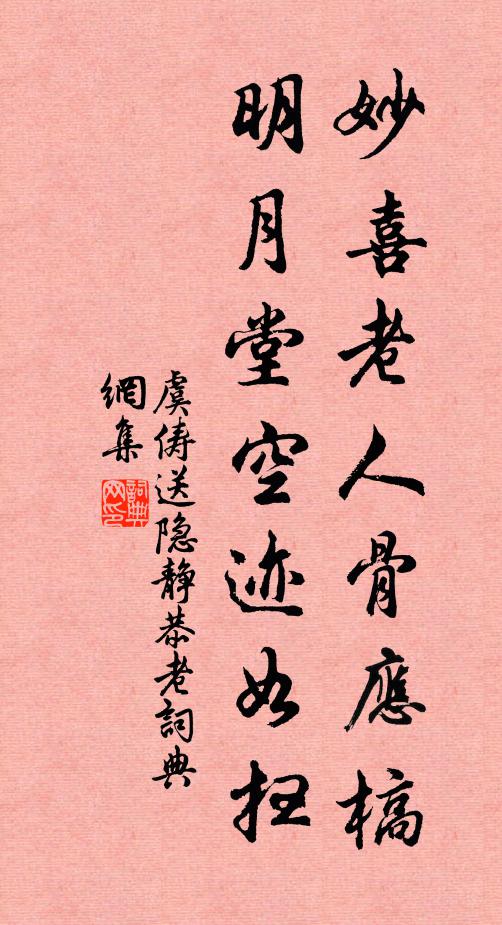 妙喜老人骨應槁
明月堂空迹如扫
虞儔送隐静恭老詞典
網集
詞典
网印